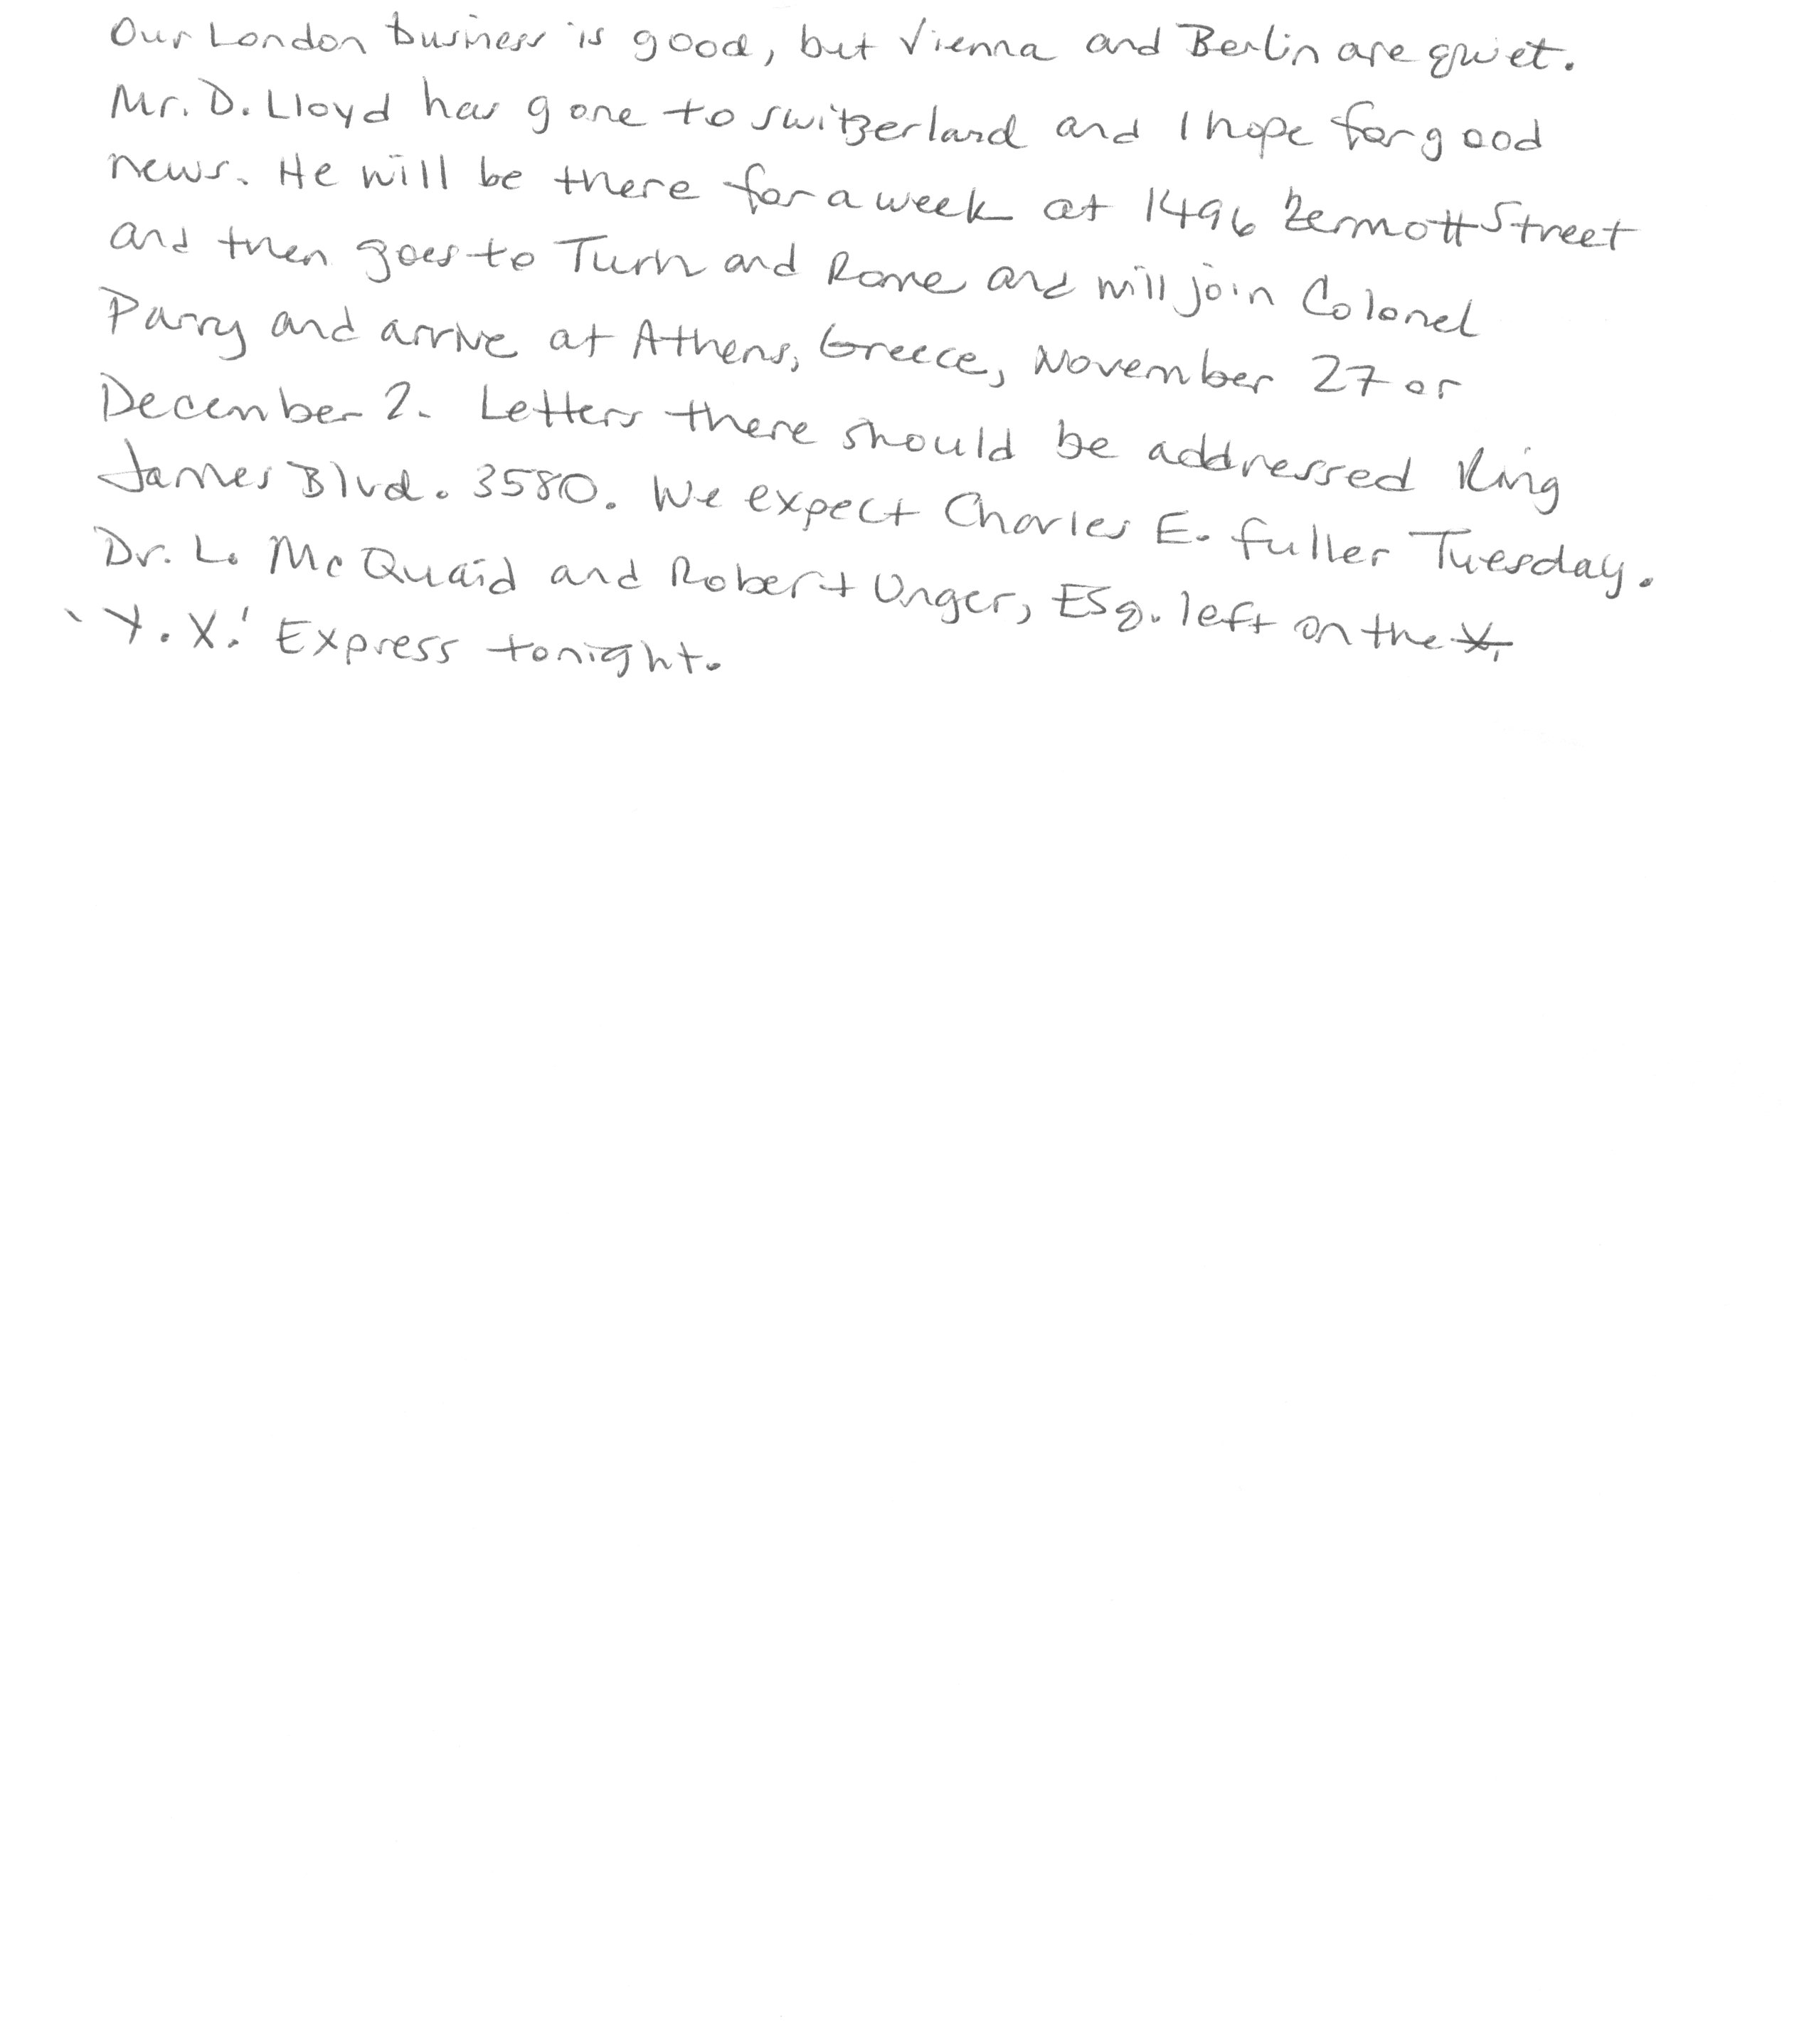 Our London business is good, but Vienna and Berlin are quiet.
Mr. D. Lloyd has gone to Switzerland and I hope for good
news. He will be there for a week at 1496 Zermott Street
and then goes to Turin and Rome and will join Colonel
Parry and arrive at Athens, Greece, November 27 or
December 2. Letters there should be addressed King
James Blvd. 3580. We expect Charles E. Fuller Tuesday.
Dr. L. McQuaid and Robert Unger, Esq. left on the
'Y.X.' Express tonight.